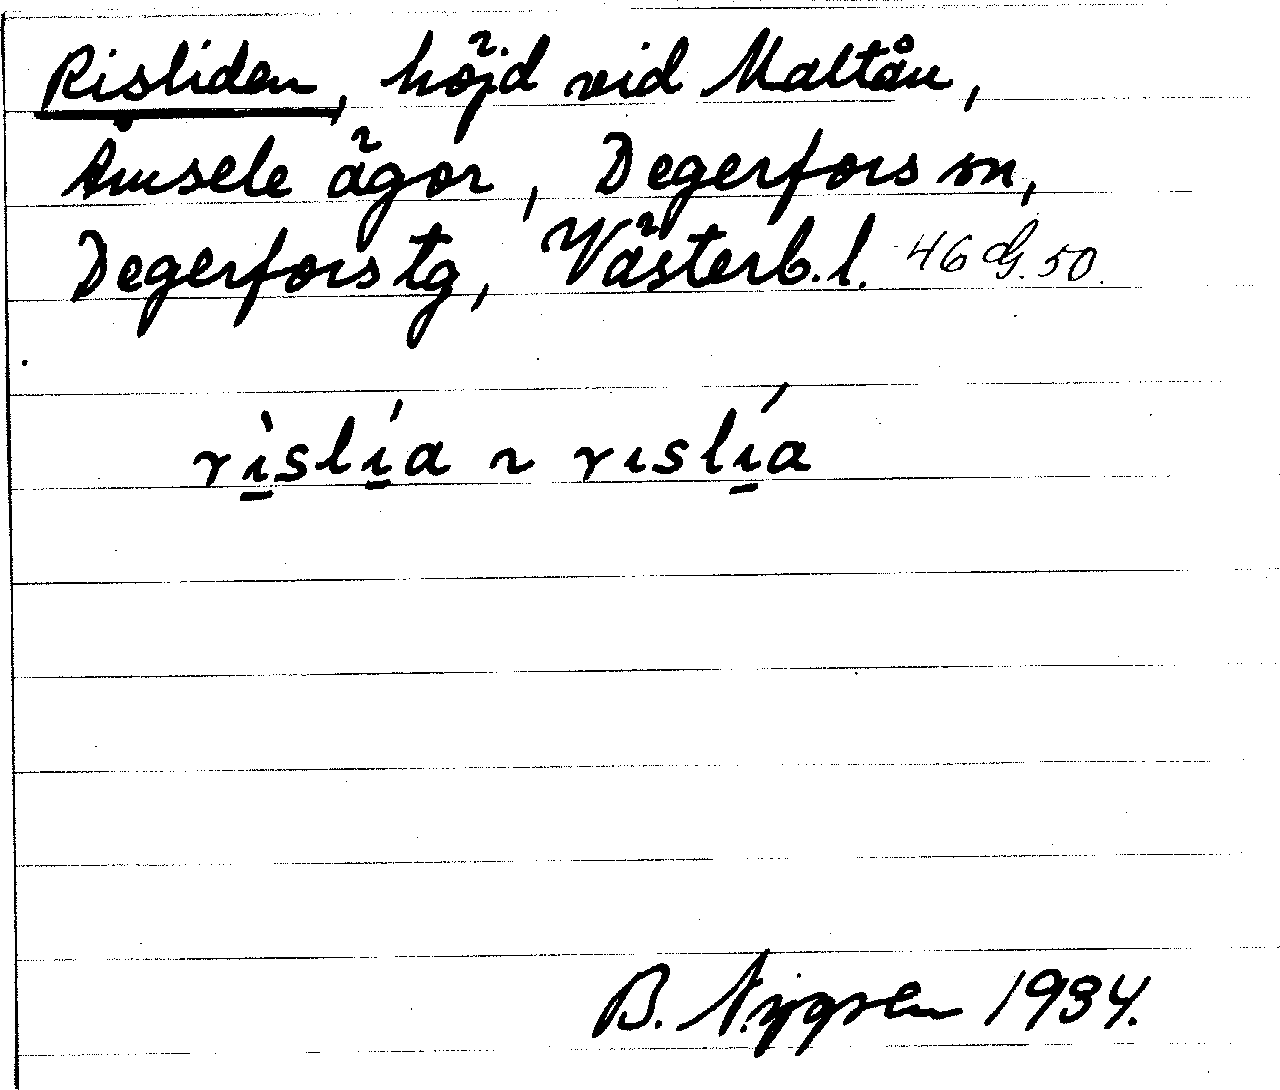 Risliden, höjd vid Maltån,
Åmsele ägor, Degerfors sn,
Degerfors tg, Västerb. l. 46 G. 50.
rı̠̀slı̠́a ~ rıslı̠́a
B. Nygren 1934.